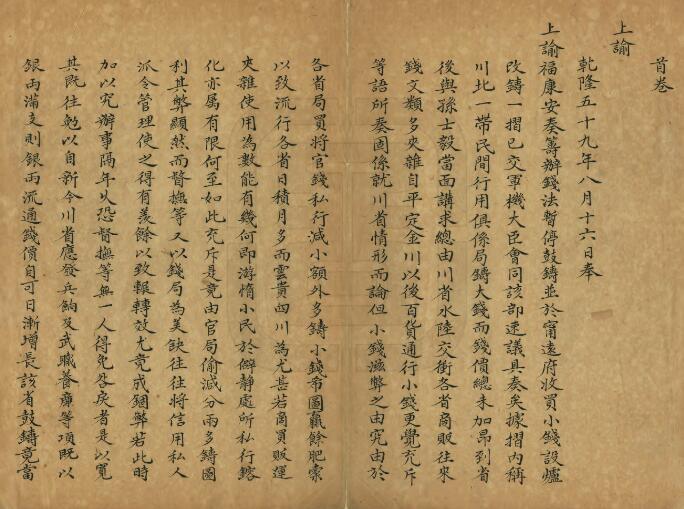 首卷
上諭
乾隆五十九年八月十六日奉
上諭福康安奏籌辦錢法暫停鼓鑄並於甯遠府收買小錢設爐
改鑄一摺已交軍機大臣會同該部速議具奏矣據摺内稱
川北一帶民間行用俱係局鑄大錢而錢價總未加昂到省
後與孫士毅當面講求總由川省水陸交衝各省商販往來
錢文類多夾雜自平定金川以後百貨通行小錢更覺充斥
等語所奏固係就川省情形而論但小錢滋弊之由究由於
各省局員將官錢私行減小額外多鑄小錢希圖羸餘肥橐
以致流行各省日積月多而雲貴四川為尤甚若商賈販運
夾雜使用為數能有幾何即游惰小民於僻靜處所私行鎔
化亦屬有限何至如此充斥是竟由官局偷減分兩多鑄圖
利其弊顯然而督撫等又以錢局為美缺往往將信用私人
派令管理使之得有羡餘以致輾轉效尤竟成錮弊若此時
加以究辦事隔年久恐督撫等無一人得免咎戾者是以寬
其既往勉以自新今川省應發兵餉及武職養廉等項既以
銀兩滿支則銀兩流通錢價自可日漸增長該省鼓鑄竟當